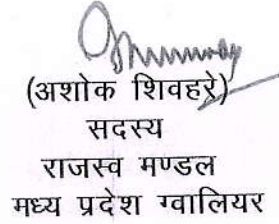 (अशोक शिवहरे)
सदस्य
राजस्व मण्डल
मध्य प्रदेश ग्वालियर